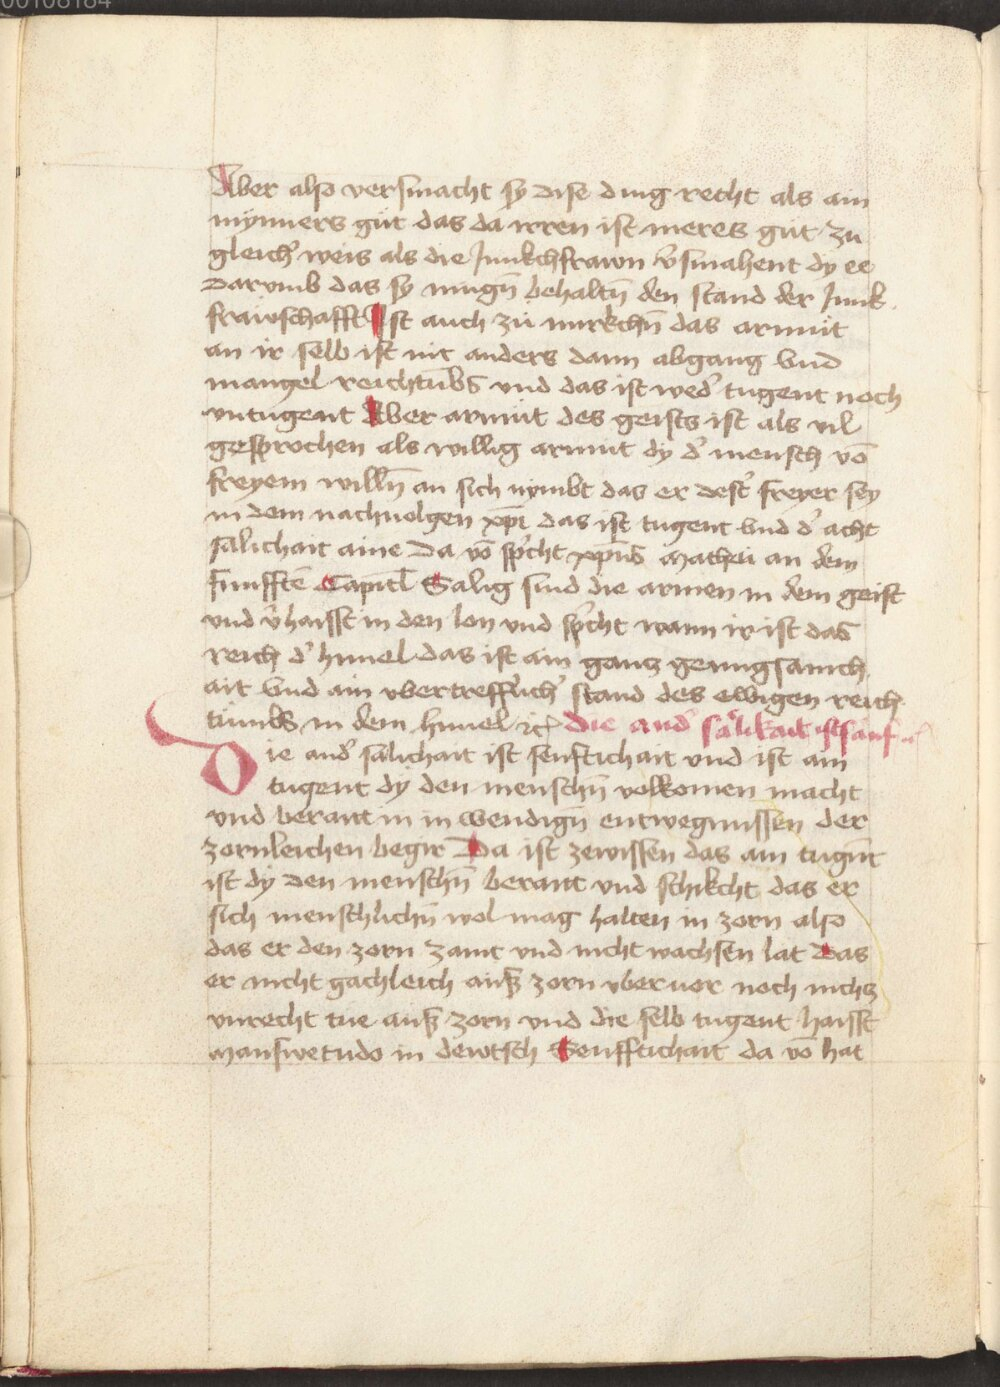 00108184
Aber also versmacht sy dise ding recht als ain
mynners gůt das da irren ist meres gůt zu
gleich' weis als die Junkchfrawn v'smahent dy ee
Darumb das sy mugn̄ behaltn̄ den stand der Junk
frawschafft Ist auch zů mirkchn̄ das armůt
an ir selb ist nit anders dann abgang vnd
mangel reichtůbs vnd das ist wed' tugent noch
vntugent Aber armůt des geists ist als vil
gesprochen als willig armut dy d' mensch vō
freyem willn̄ an sich nymbt das er dest' freyer sey
in dem nachuolgen xp̄i das ist tugent vnd d' acht
salichait aine Da vō sp'cht xp̄us Mathei an dem
funfften̄ Capitl̄ Salig sind die armen in dem geist
vnd v'haisst in den lon vnd sp'cht wann ir ist das
reich d' himel das ist ain gancz genugsamch
ait vnd ain vbertreffl'ich' stand des ewigen reich
tůmbs in dem himel ꝛc̄ Die and' sälikait ist sanf
Die and' salichait ist senftichait vnd ist ain
tugent dy den menschn̄ volkomen macht
vnd berait in in wendign̄ entwegnussen der
zornleichen begir Da ist zewissen das ain tugn̄t
ist dy den menschn̄ berait vnd schikcht das er
sich menschlichn̄ wol mag halten in zorn also
das er den zorn zamt vnd nicht wachsen lat Das
er nicht gachleich auß zorn vberuar noch nichz
vnrecht tue auß zorn vnd die selb tugent haisst
Manswetudo in dewtsch Senfftichait da vō hat